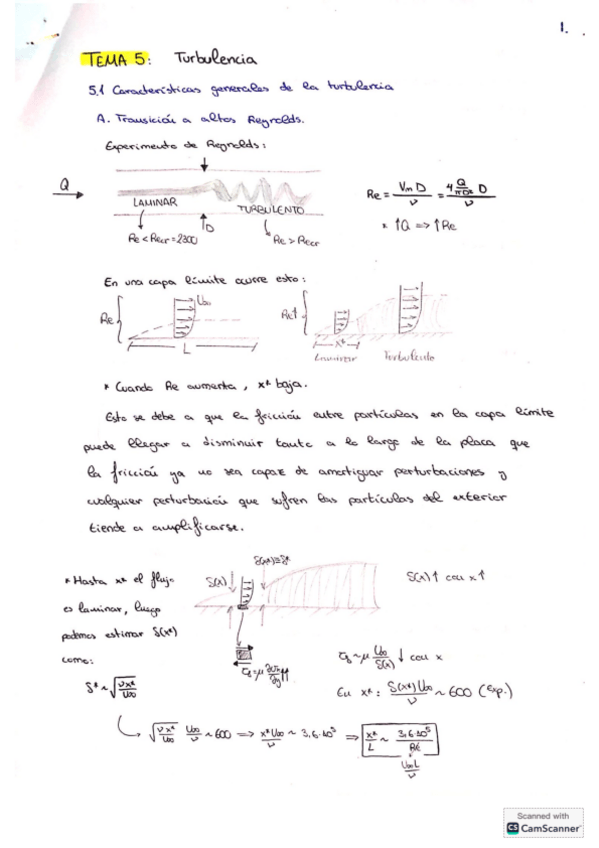 1.
TEMA 5: Turbulencia
5.1 Características generales de la turbulencia
A. Transición a altos Reynolds.
Experimento de Reynolds:
Q
LAMINAR
TURBULENTO
D
Re < Recr = 2300
Re > Recr
Re = Vm D / ν = 4 Q/πD² D / ν
* ↑Q => ↑Re
En una capa límite ocurre esto:
Re
U∞
L
Re↑
x*
Laminar
Turbulento
* Cuando Re aumenta, x* baja.
Esto se debe a que la fricción entre partículas en la capa límite
puede llegar a disminuir tanto a lo largo de la placa que
la fricción ya no sea capaz de amortiguar perturbaciones y
cualquier perturbación que sufren las partículas del exterior
tiende a amplificarse.
* Hasta x* el flujo
es laminar, luego
podemos estimar δ(x*)
como:
δ* ~ √(νx*/U∞)
δ(x)
δ(x*)≡δ*
δ(x)↑ con x↑
τ₀ ~ μ U∞/δ(x) ↓ con x
En x*: δ(x*)U∞/ν ~ 600 (Exp.)
√(νx*/U∞) U∞/ν ~ 600 => x*U∞/ν ~ 3,6·10⁵ => x*/L ~ 3,6·10⁵/Re
U∞L/ν
Scanned with
CS CamScanner